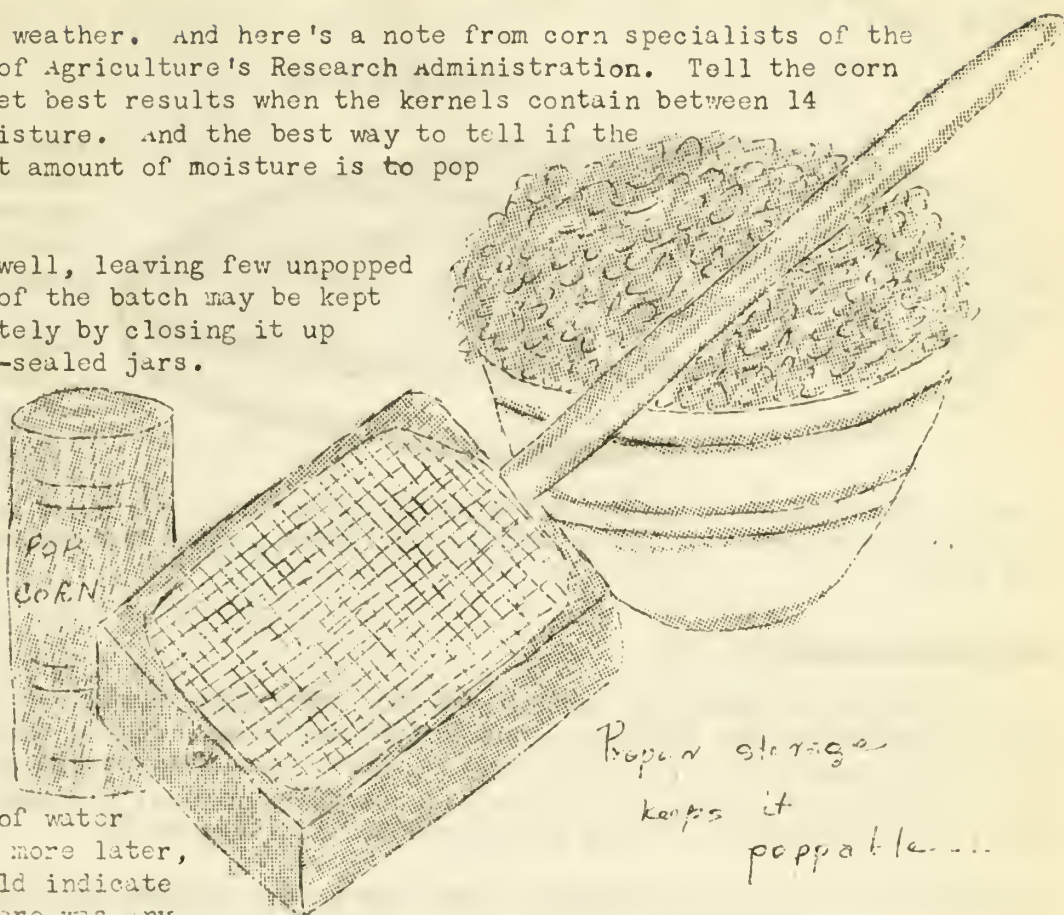 weather. And here's a note from corn specialists of the
of Agriculture's Research Administration. Tell the corn
et best results when the kernels contain between 14
isture. And the best way to tell if the
t amount of moisture is to pop
well, leaving few unpopped
of the batch may be kept
tely by closing it up
-sealed jars.
POP
CORN
Proper storage
keeps it
poppable....
of water
more later,
ld indicate